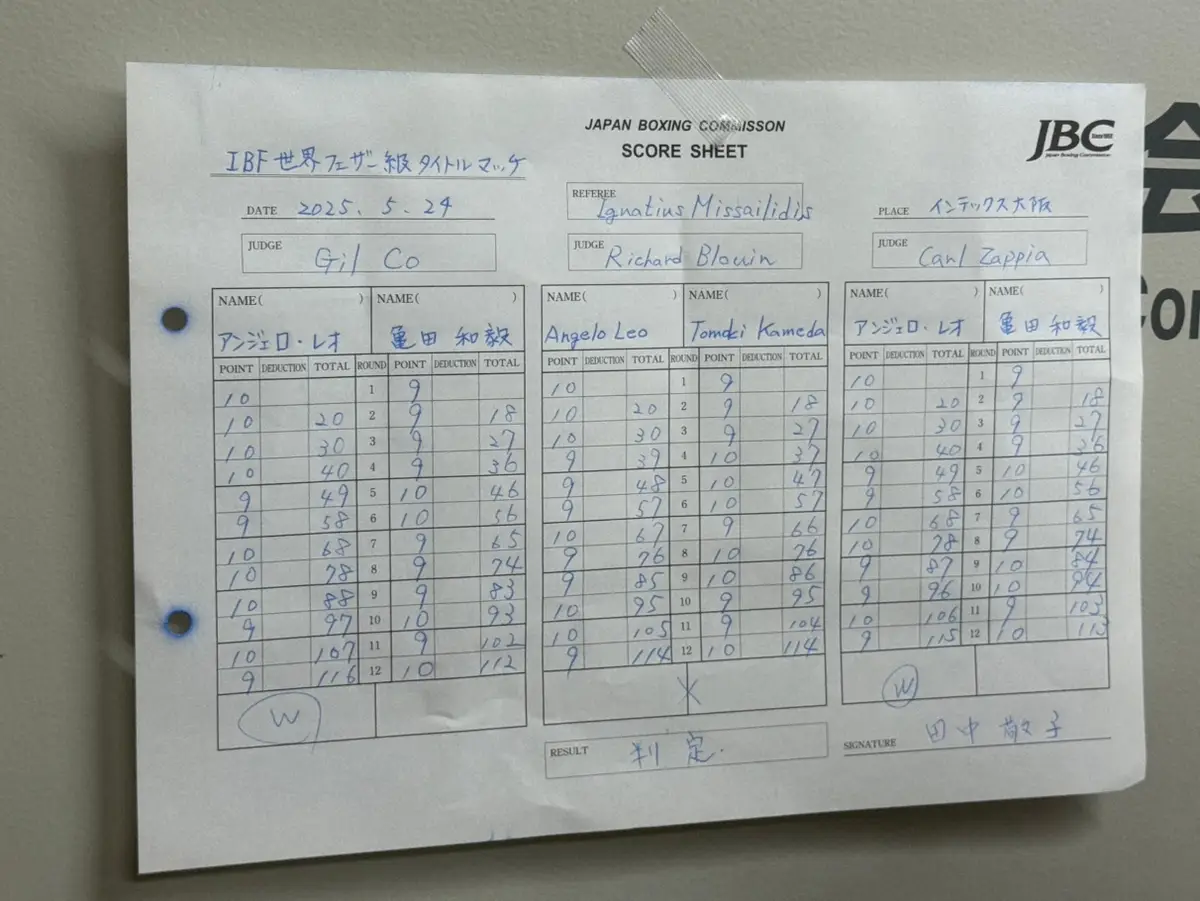 JAPAN BOXING COMMISSON
SCORE SHEET
JBC
Japan Boxing Commission
IBF 世界フェザー級タイトルマッチ
DATE 2025. 5. 24
REFEREE Ignatius Missailidis
PLACE インテックス大阪
JUDGE Gil Co
JUDGE Richard Blouin
JUDGE Carl Zappia
NAME( ) NAME( ) NAME( ) NAME( ) NAME( ) NAME( )
アンジェロ・レオ 亀田 和毅 Angelo Leo Tomoki Kameda アンジェロ・レオ 亀田 和毅
POINT DEDUCTION TOTAL ROUND POINT DEDUCTION TOTAL POINT DEDUCTION TOTAL ROUND POINT DEDUCTION TOTAL POINT DEDUCTION TOTAL ROUND POINT DEDUCTION TOTAL
10 1 9 10 1 9 10 1 9
10 20 2 9 18 10 20 2 9 18 10 20 2 9 18
10 30 3 9 27 10 30 3 9 27 10 30 3 9 27
10 40 4 9 36 9 39 4 10 37 10 40 4 9 36
9 49 5 10 46 9 48 5 10 47 9 49 5 10 46
9 58 6 10 56 9 57 6 10 57 9 58 6 10 56
10 68 7 9 65 10 67 7 9 66 10 68 7 9 65
10 78 8 9 74 9 76 8 10 76 10 78 8 9 74
10 88 9 9 83 9 85 9 10 86 9 87 9 10 84
9 97 10 10 93 10 95 10 9 95 9 96 10 10 94
10 107 11 9 102 10 105 11 9 104 10 106 11 9 103
9 116 12 10 112 9 114 12 10 114 9 115 12 10 113
W X W
RESULT 判定.
SIGNATURE 田中 敬子
会
Con